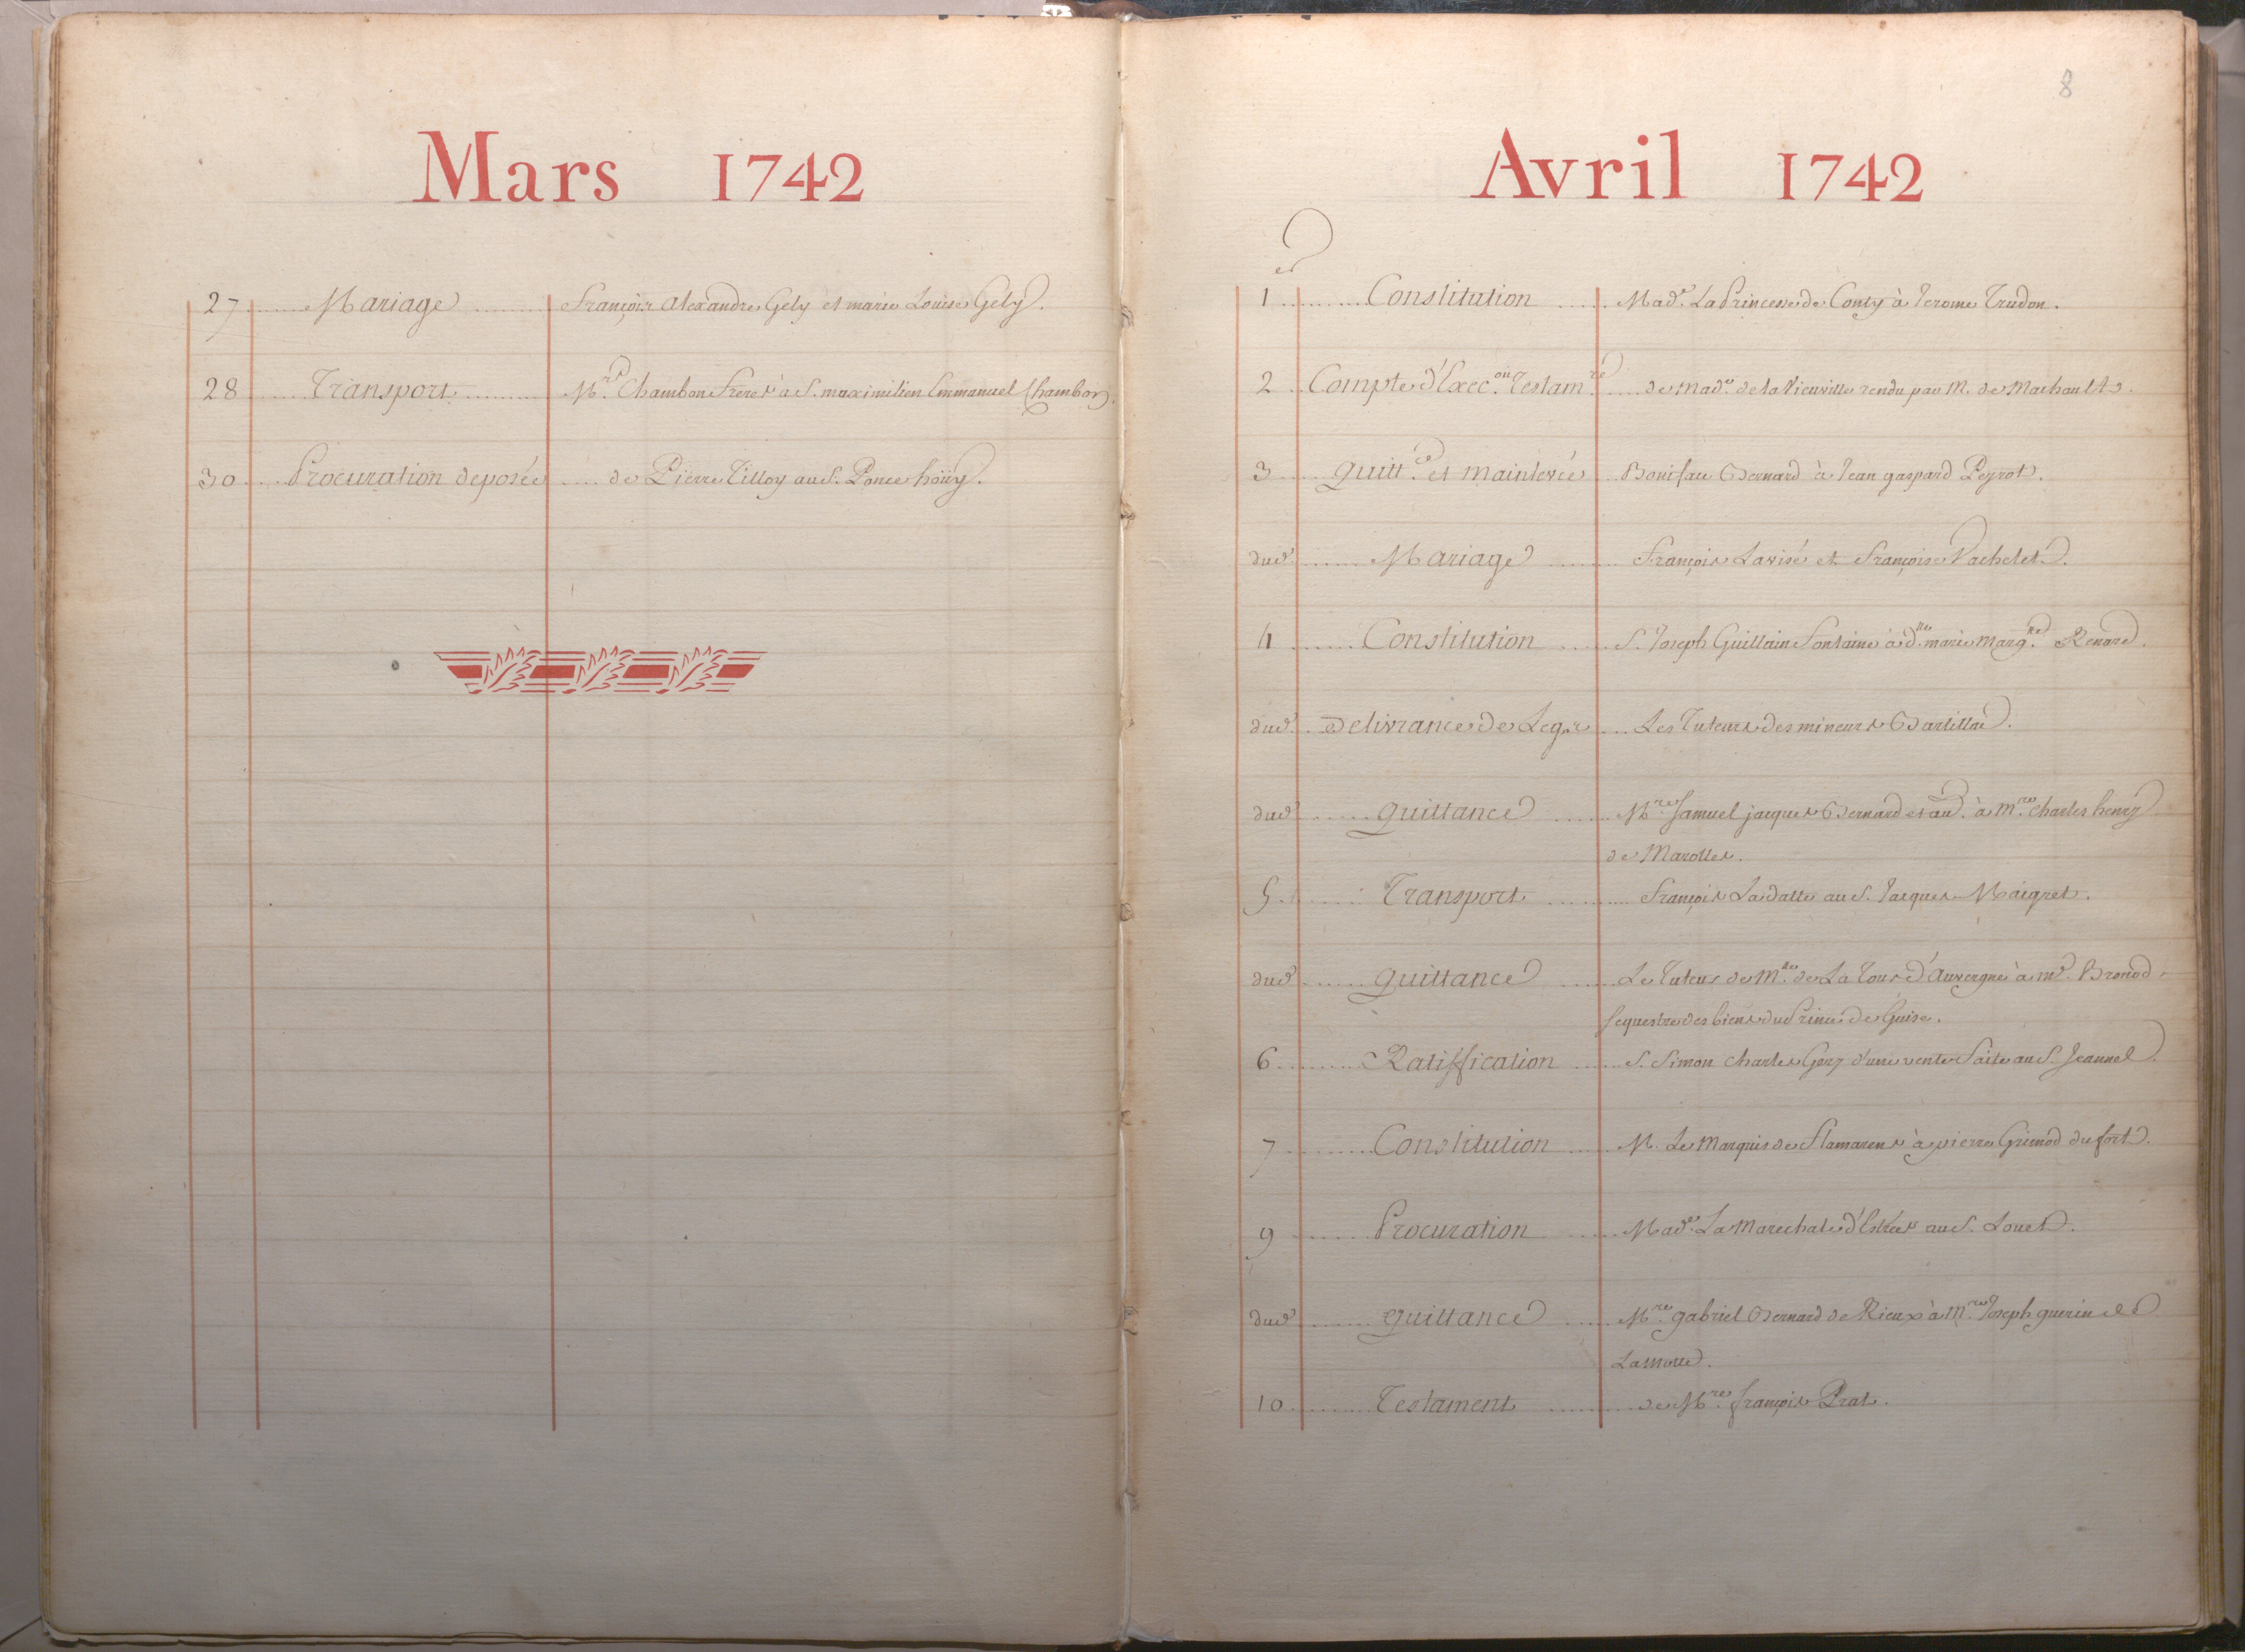 Mars 1742
27 Mariage François Alexandre Gely et marie Louise Gely.
28 Transport Mrs Chambon Freres à S. maximilien Emmanuel Chambon.
30 Procuration deposée de Pierre Tilloy au S. Ponce hoüy.
8
Avril 1742
1er Constitution Made. La Princesse de Conty à Jerome Trudon.
2 Compte d'Execon. Testamre. de made. de la Vieuville rendu par M. de Machault
3 quittce. et mainlevée Bernard à Jean gaspard Peyrot.
dud. Mariage François Lavisé et Françoise Vachelet.
4 Constitution S. Joseph Guillain Fontaine à dlle. marie Margte. Renard.
dud. Delivrance de Legs Les Tuteurs des mineurs
dud. quittance Mre. Samuel jacques Bernard et au. à mre. Charles henry
de Marolles.
5 Transport François Ladatte au S. Jacques Maigret.
dud. quittance Le Tuteur de Mlle. de La Tour d'Auvergne à me. Bronod
sequestre des biens du Prince de Guise.
6 Ratiffication S. Simon Charles d'une vente Faite au S. Jeannel
7 Constitution M. Le Marquis de Flamarens à pierre Grimod dufort.
9 Procuration Made. La Marechale d'Estrées au S. Louet.
dud. quittance Mre. gabriel Bernard de Rieux à Mre. Joseph guerin de
Lamotte.
10 Testament de Mre. françois Prat.